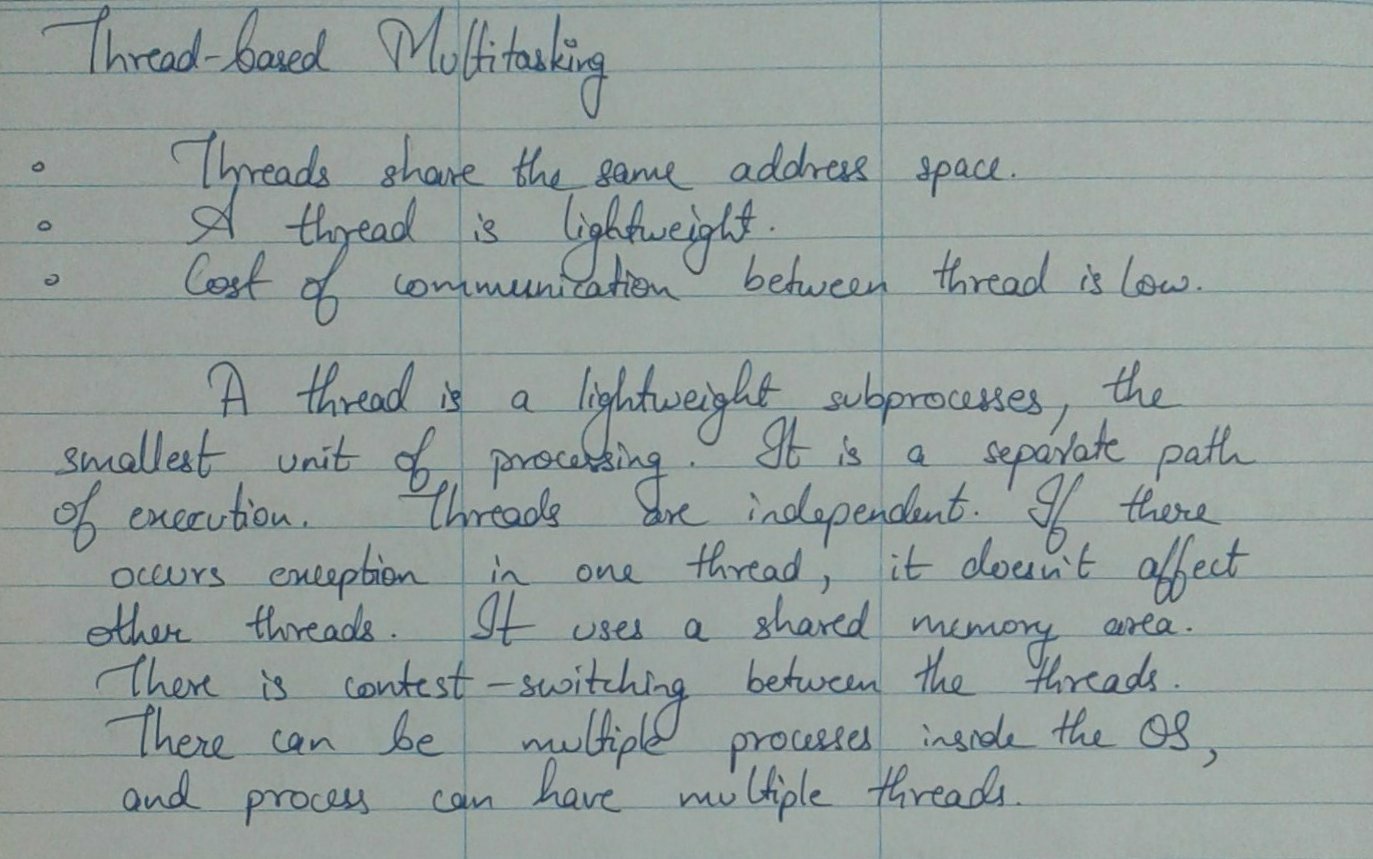 Thread-based Multitasking
◦ Threads share the same address space.
◦ A thread is lightweight.
◦ Cost of communication between thread is low.
A thread is a lightweight subprocesses, the
smallest unit of processing. It is a separate path
of execution. Threads are independent. If there
occurs exception in one thread, it doesn't affect
other threads. It uses a shared memory area.
There is contest-switching between the threads.
There can be multiple processes inside the OS,
and process can have multiple threads.